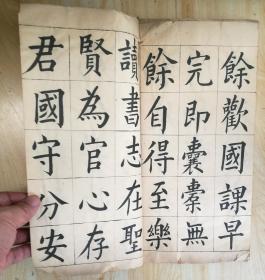 餘歡國課早
完即囊橐無
餘自得至樂
讀書志在聖
賢為官心存
君國守分安